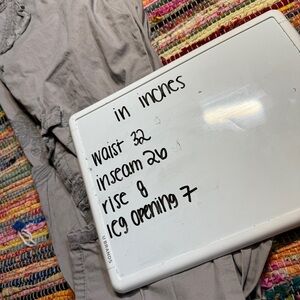 in inches
waist 32
inseam 26
rise 8
leg opening 7